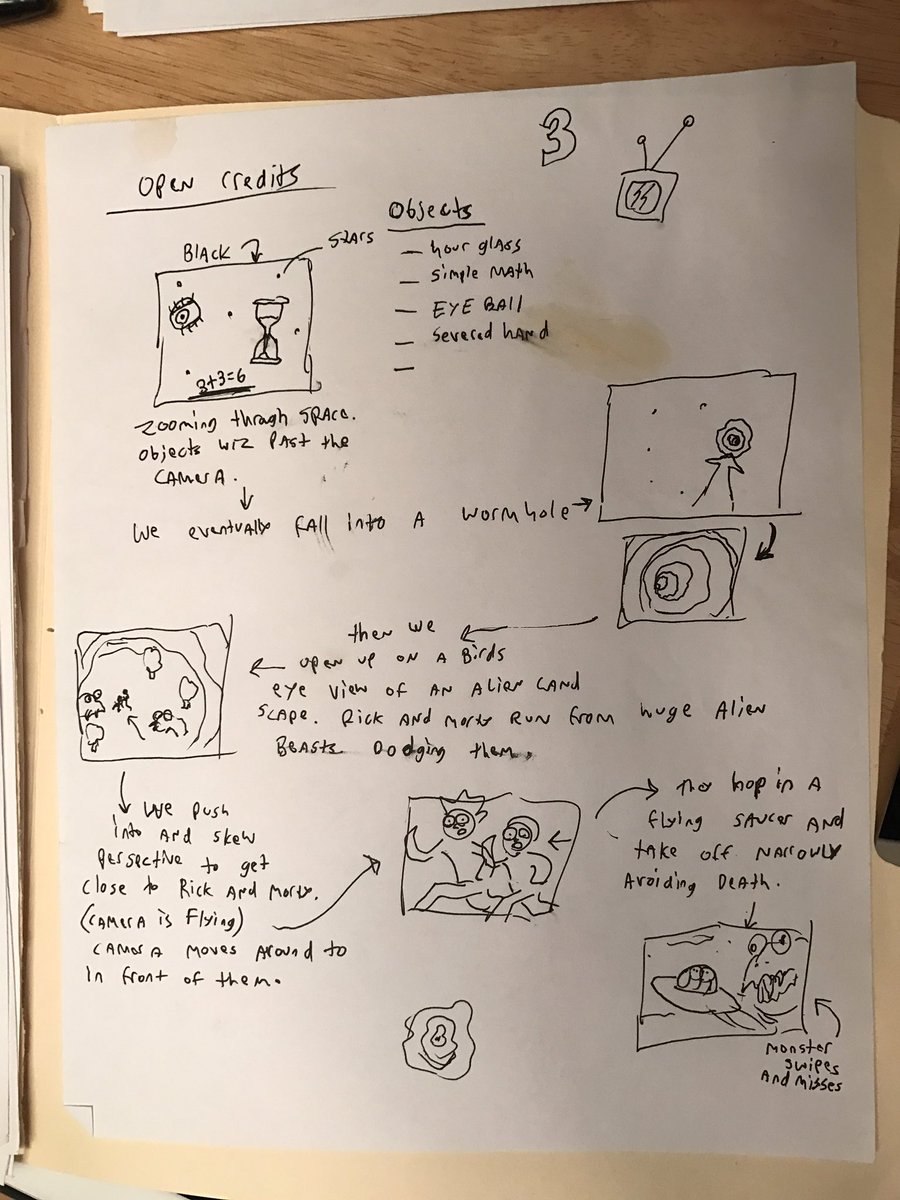 3
OPEN CREDITS
Objects
BLACK
STARS
— hour glass
— Simple MATH
— EYE BALL
— Severed HAND
—
3+3=6
Zooming through SPACE.
objects wiz PAST the
CAMERA.
We eventually FALL into A wormhole
then we
OPEN UP ON A BIRDS
EYE VIEW OF AN ALIEN LAND
SCAPE. RICK AND MORTY RUN FROM huge Alien
BEASTS Dodging them.
We PUSH
into AND SKEW
PERSPECTIVE to get
close to RICK AND MORTY.
(CAMERA is Flying)
CAMERA MOVES AROUND TO
IN front of them.
They hop in A
FLYING SAUCER AND
TAKE OFF NARROWLY
AVOIDING DEATH.
MONSTER
SWIPES
AND MISSES
3